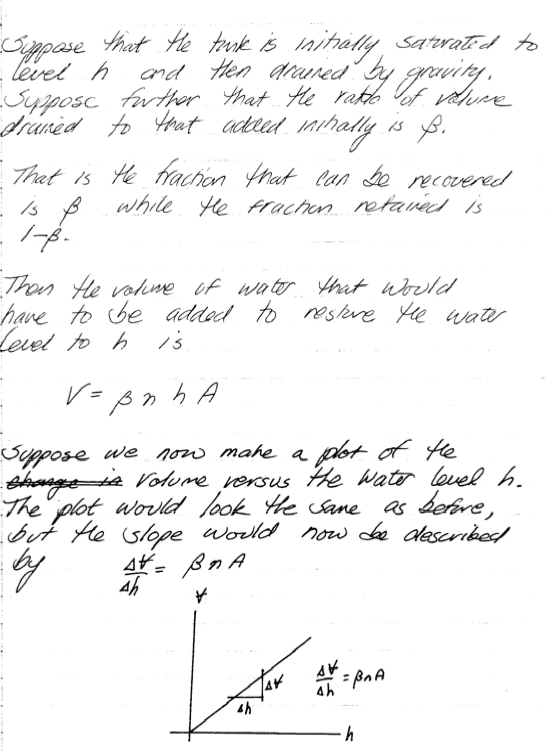 Suppose that the tank is initially saturated to
level h and then drained by gravity.
Suppose further that the ratio of volume
drained to that added initially is β.
That is the fraction that can be recovered
is β while the fraction retained is
1-β.
Then the volume of water that would
have to be added to restore the water
level to h is
V = β n h A
Suppose we now make a plot of the
change in Volume versus the water level h.
The plot would look the same as before,
but the slope would now be described
by ΔV/Δh = β n A
V
ΔV
Δh
ΔV/Δh = β n A
h